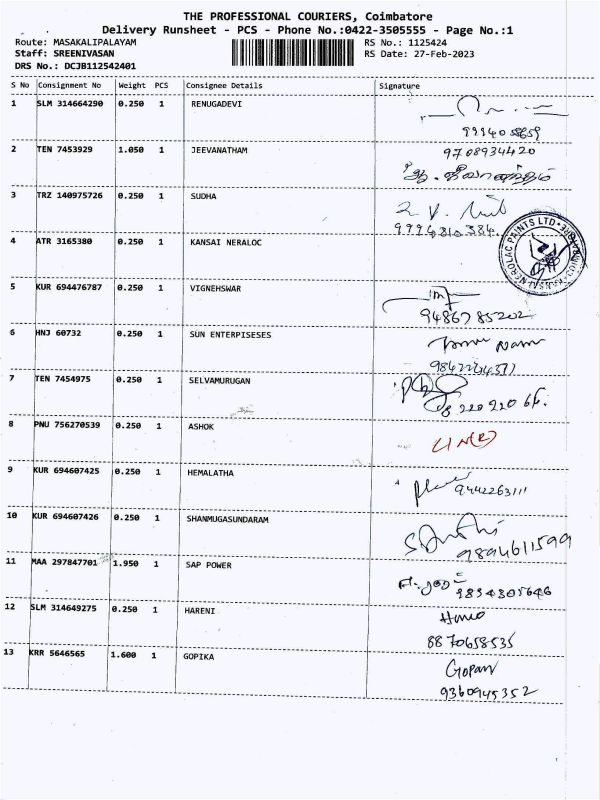 THE PROFESSIONAL COURIERS, Coimbatore
Delivery Runsheet - PCS - Phone No.:0422-3505555 - Page No.:1
Route: MASAKALIPALAYAM RS No.: 1125424
Staff: SREENIVASAN RS Date: 27-Feb-2023
DRS No.: DCJB112542401
S No Consignment No Weight PCS Consignee Details Signature
1 SLM 314664290 0.250 1 RENUGADEVI
2 TEN 7453929 1.050 1 JEEVANATHAM 9708934420
3 TRZ 140975726 0.250 1 SUDHA
4 ATR 3165380 0.250 1 KANSAI NERALOC
NEROLAC PAINTS LTD
5 KUR 694476787 0.250 1 VIGNEHSWAR
9486785202
6 HNJ 60732 0.250 1 SUN ENTERPISESES
7 TEN 7454975 0.250 1 SELVAMURUGAN
8 PNU 756270539 0.250 1 ASHOK
9 KUR 694607425 0.250 1 HEMALATHA
9442263111
10 KUR 694607426 0.250 1 SHANMUGASUNDARAM
9894611599
11 MAA 297847701 1.950 1 SAP POWER
12 SLM 314649275 0.250 1 HARENI
8870658535
13 KRR 5646565 1.600 1 GOPIKA
9360945352